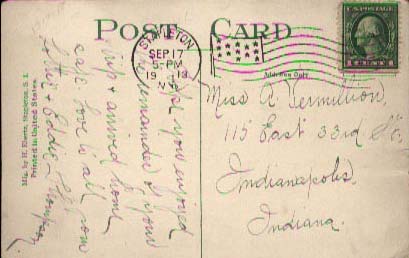 POST CARD
STAPLETON
SEP 17
5-PM
19 13
N.Y.
Address Only
U.S. POSTAGE
1 CENT 1
Miss A. Vermillion,
115 East 33rd St.
Indianapolis,
Indiana.
Hope you enjoyed
remainder of your
trip & arrived home
safe. Love to all from
Lottie & Eddie
Mfg. by H. Ebertz, Stapleton, S. I.
Printed in United States.